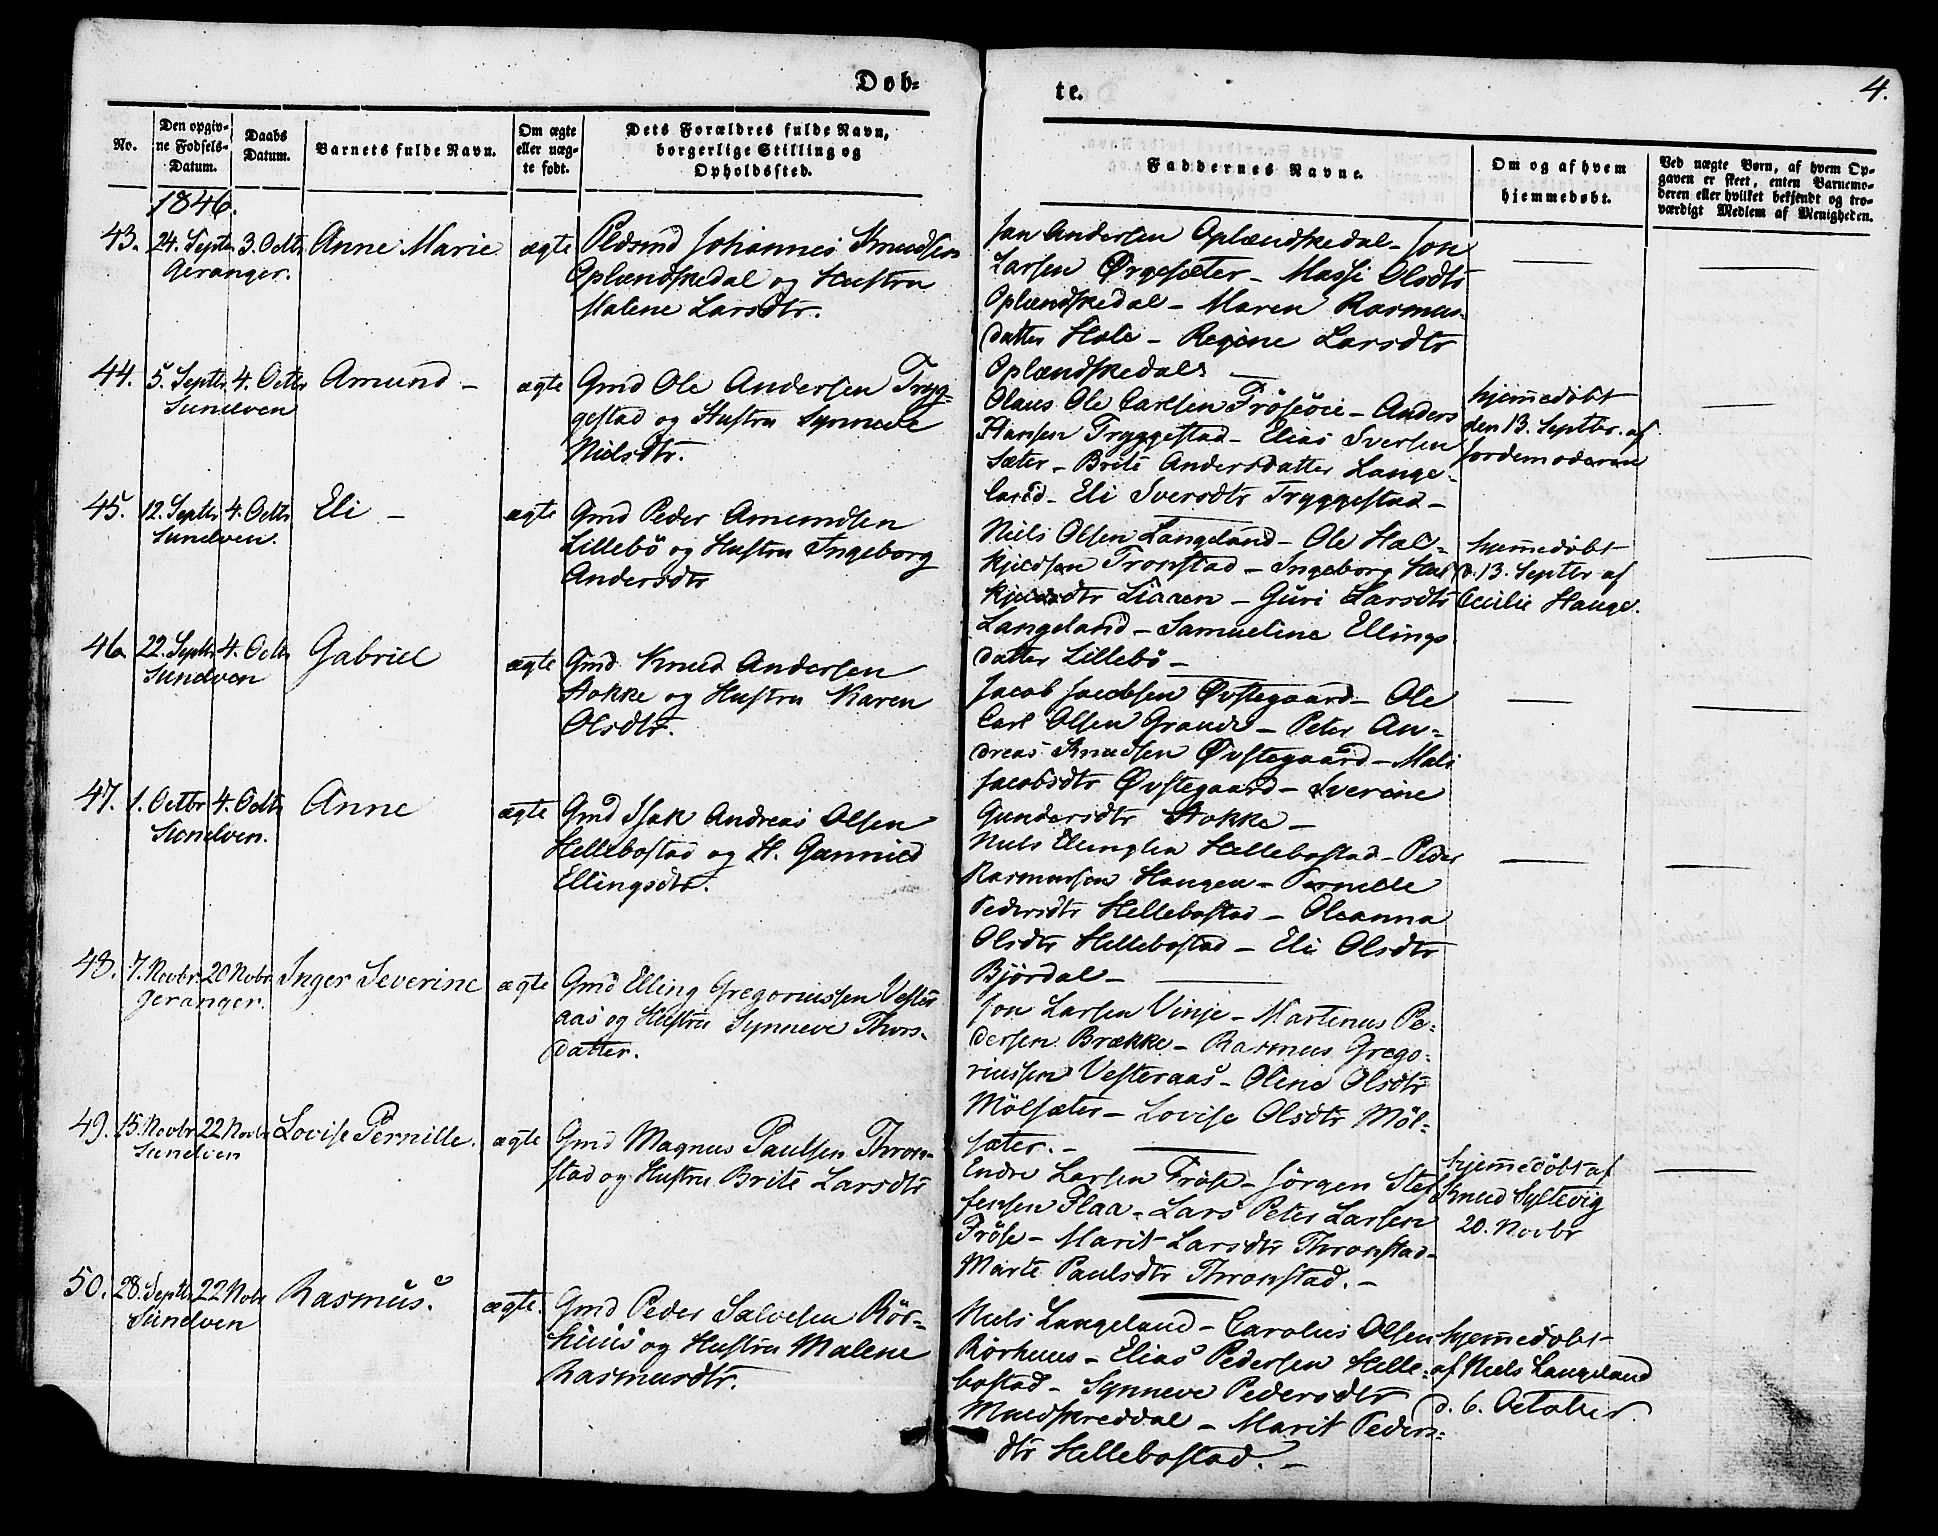 Døb-
te.
4.
No.
Den opgiv-
ne Fødsels-
Datum.
Daabs
Datum.
Barnets fulde Navn.
Om ægte
eller uæg-
te født.
Dets Forældres fulde Navn,
borgerlige Stilling og
Opholdssted.
Faddernes Navne.
Om og af hvem
hjemmedøbt.
Ved uægte Børn, af hvem Op-
gaven er skeet, enten Barnemo-
deren eller hvilket bekjendt og tro-
værdigt Medlem af Menigheden.
1846.
43. 24. Septr 3. Octbr Anne Marie ægte Johannes Knudsen
Geranger.
Oplændskedal og Hustru
Malene Larsdtr.
Jon Andersen Oplændskedal - Jon
Larsen Ørgesæter - Massi Olsdtr
Oplændskedal - Maren Rasmus-
datter Hole - Regine Larsdtr
Oplændskedal
44. 5. Septbr 4. Octbr Amund - ægte Gmd Ole Andersen Tryg-
Sundven
gestad og Hustru Synneve
Nielsdtr.
Olaus Ole Carlsen Frøseøie - Anders
Hansen Tryggestad - Elias Iversen
Sæter - Brite Andersdatter Lange-
land - Eli Iversdtr Tryggestad -
hjemmedøbt
den 13. Septbr. af
Jordemoderen
45. 12. Septbr 4. Octbr Eli - ægte Gmd Peder Amundsen
Sundven.
Lillebö og Hustru Ingeborg
Andersdtr
Niels Olsen Langeland - Ole Hal-
kjeldsen Tronstad - Ingeborg Hal
kjeldsdtr Liaaen - Guri Larsdtr
Langeland - Samueline Ellings
datter Lillebö -
hjemmedøbt
d. 13. Septbr af
Cecilie Hauge.
46. 22. Septbr 4. Octbr Gabriel ægte Gmd Knud Andersen
Sundven
Stokke og Hustru Karen
Olsdtr.
Jacob Jacobsen Øvstegaard - Ole
Carl Olsen Grande - Peter An-
dreas Knudsen Øvstegaard - Mali
Jacobsdtr Øvstegaard - Iverine
Gundersdtr Stokke -
47. 1. Octbr 4. Octbr Anne ægte Gmd Isak Andreas Olsen
Sundven.
Hellebostad og H. Gunnild
Ellingsdtr.
Niels Hellebostad - Peder
Rasmussen Haugen - Pernille
Pedersdtr Hellebostad - Oleanna
Olsdtr Hellebostad - Eli Olsdtr
Björdal -
48. 7. Novbr 20 Novbr Inger Severine ægte Gmd Elling Gregoriussen Vester
Geranger.
aas og Hustru Synneve Thors-
datter.
Jon Larsen Vinje - Martinus Pe-
dersen Brække - Rasmus Grego-
riussen Vesteraas - Oline Olsdtr
Mölsæter - Lovise Olsdtr Möl-
sæter. -
49. 15. Novbr 22 Novbr Lovise Pernille. ægte Gmd Magnus Paulsen Thron-
Sundven
stad og Hustru Brite Larsdtr
Endre Larsen Fröse - Jörgen Stef
fensen Flaa - Lars Peter Larsen
Fröse - Marit Larsdtr Thronstad -
Marte Paulsdtr Thronstad. -
hjemmedöbt af
Knud Syltevig
20. Novbr
50. 28. Septbr 22 Novbr Rasmus. ægte. Gmd Peder Salvesen Rör-
Sundven
huus og Hustru Malene
Rasmusdtr.
Niels Langeland - Carolus Olsen
Rörhuus - Elias Pedersen Helle-
bostad - Synneve Pedersdtr
Muldskreddal - Marit Peders-
dtr Hellebostad. -
hjemmedöbt
af Niels Langeland
d. 6. October.